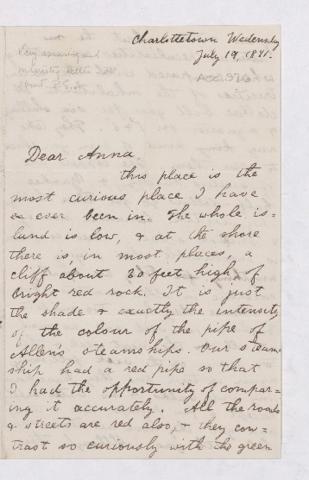 Charlottetown Wednesday
July 19, 1871.
Dear Anna.
this place is the
most curious place I have
ever been in. The whole is=
land is low, & at the shore
there is, in most places, a
cliff about 30 feet high of
bright red rock. It is just
the shade & exactly the intensity
of the colour of the pipe of
Allen's steamships. Our steam
ship had a red pipe so that
I had the opportunity of compar=
ing it accurately. All the roads
& streets are red also, & they con=
trast so curiously with the green